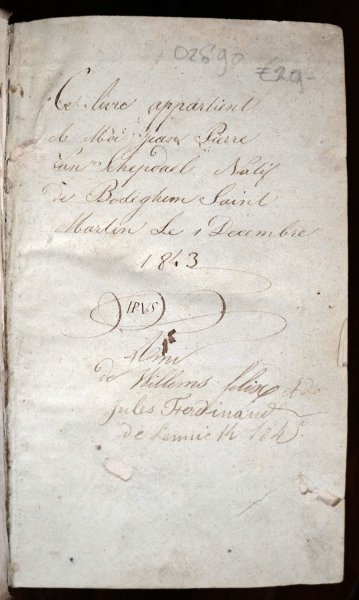 02890 £29-
Ce livre appartient
à Moi jean Pierre
van Schepdael Natif
de Bodeghem Saint
Martin Le 1 Decembre
1843
IPVS
Ami
de Willems felix & de
Jules Ferdinand
de Lennick 184